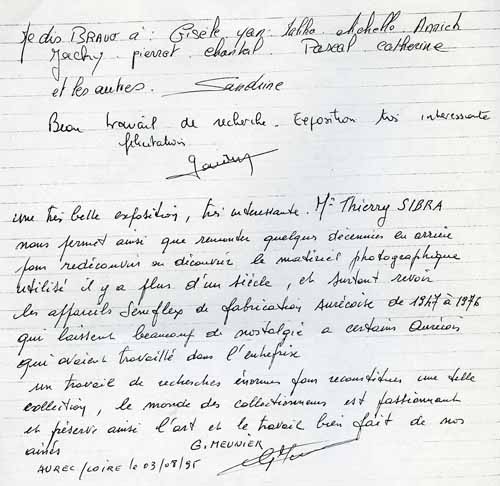 Je dis BRAVO à : Gisèle, yan, Michelle Annick
Jacky pierrot chantal Pascal catherine
et les autres. Sandrine
Beau travail de recherche. Exposition très interessante
félicitations
une très belle exposition, très intéressante. Mr Thierry SIBRA
nous permet ainsi que remonter quelques décennies en arrière
pour redécouvrir ou découvrir le matériel photographique
utilisé il y a plus d'un siècle, et surtout revoir
les appareils Semflex de fabrication Aurécoise de 1947 à 1976
qui laissent beaucoup de nostalgie a certains Aurécois
qui avaient travaillé dans l'entreprise
un travail de recherches énormes pour reconstituer une telle
collection, le monde des collectionneurs est passionnant
et préserve ainsi l'art et le travail bien fait de nos
ainés G. MEUNIER
AUREC/LOIRE le 03/08/95